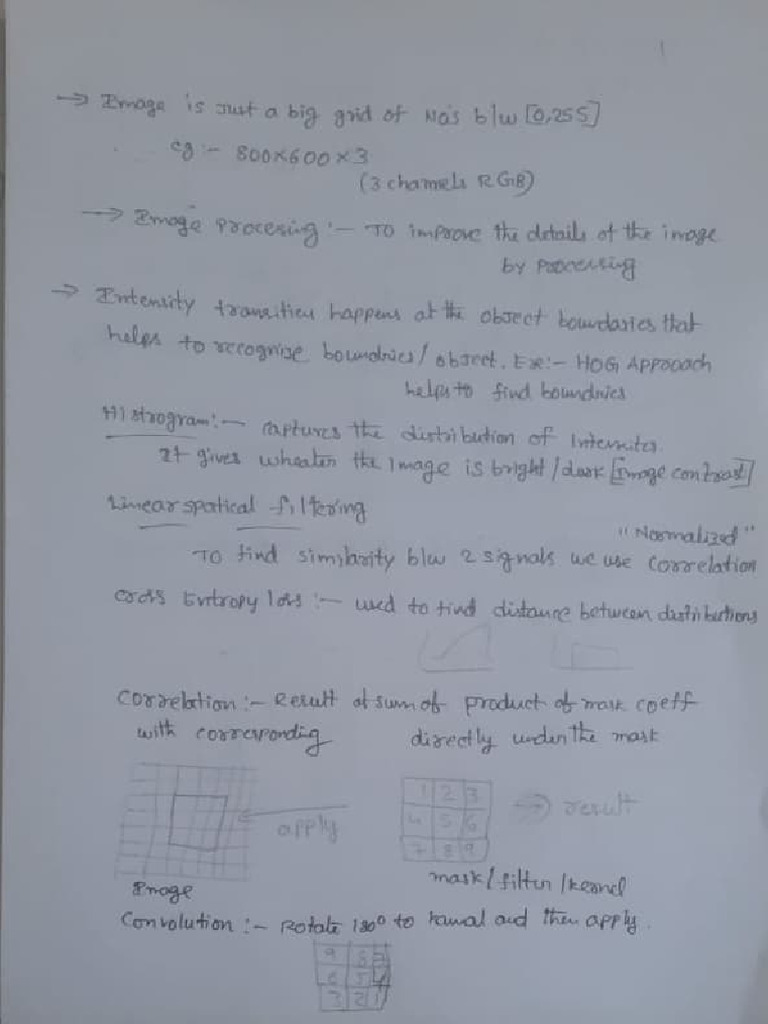 1
→ Image is Just a big grid of No's b/w [0,255]
eg :- 800x600x3
(3 channels RGB)
→ Image Procesing :- To improve the details of the image
by processing
→ Intensity transition happens at the object boundaries that
helps to recognise boundries/object. Ex:- HOG Approach
helps to find boundries
Histrogram :- captures the distribution of Intensites.
It gives wheater the Image is bright/dark [Image contrast]
Linear spatical filtering
"Normalized"
To find similarity b/w 2 signals we use correlation
Cross Entropy loss :- used to find distance between distributions
Correlation :- Result of sum of product of mask coeff
with corresponding directly under the mask
1 2 3
apply 4 5 6 → result
7 8 9
Image mask/filter/kernel
Convolution :- Rotate 180° to kernal and then apply.
9 8 7
6 5 4
3 2 1